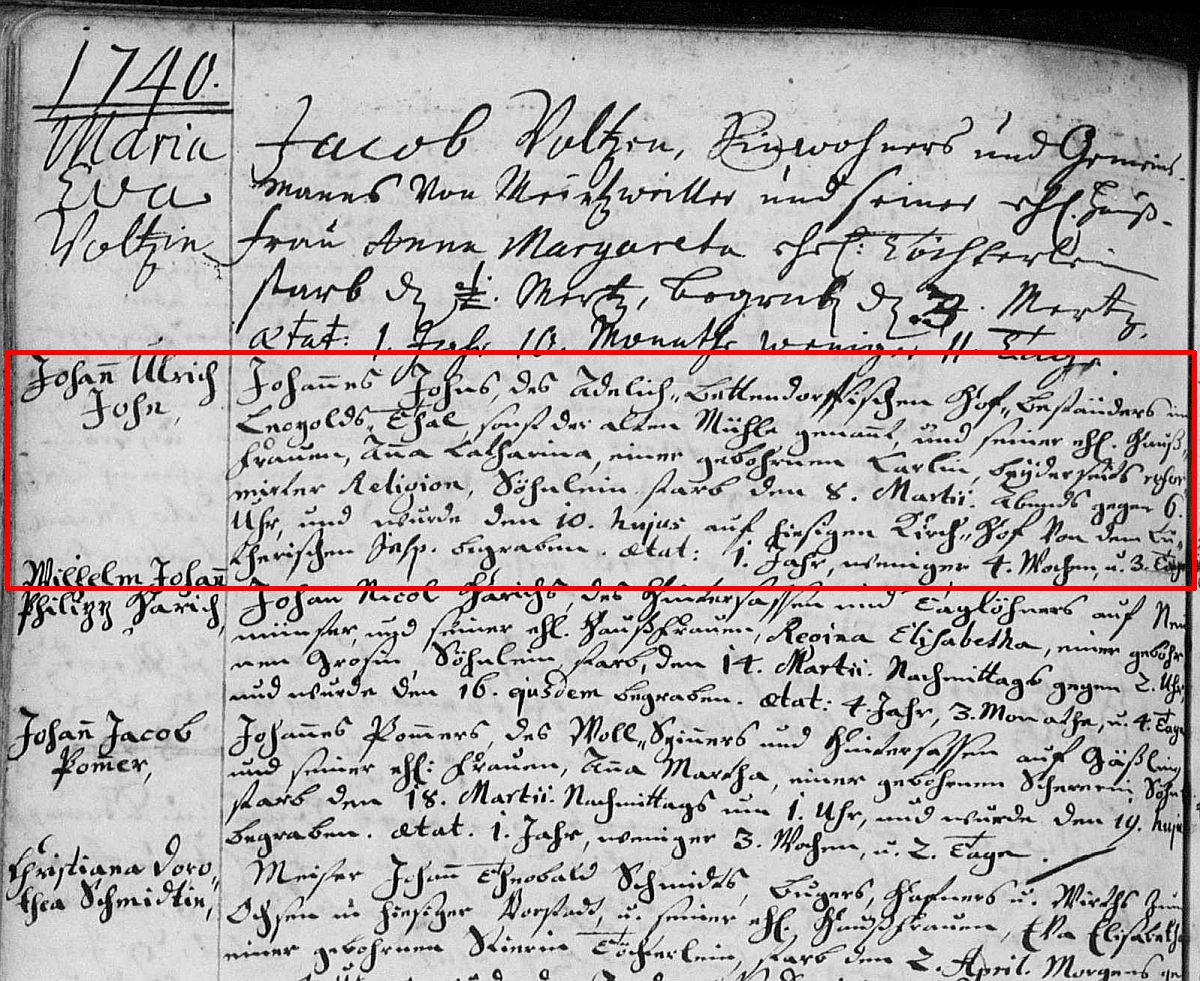 1740.
Maria
Eva
Voltzin
Jacob Voltzen, Einwohners und Gemeins-
manns von Meintzweiller und seiner ehl. Hauß-
frau Anna Margareta ehel: Töchterlein
starb d. Mertz, begrub d. 3. Mertz,
ætat: 1. Jahr 10. Monathe weniger 11. Tage.
Johañ Ulrich
John,
Johannes Johns, des Adelich„ Bettendorffischen Hof„ Beständers im
Leopolds„ Thal, sonst der alten Mühle genannt, und seiner ehl. Hauß„
Frauen, Aña Catharina, einer gebohrnen Carlin, beyderseits refor
mirter Religion, Söhnlein starb den 8. Martii. Abends gegen 6.
Uhr, und wurde den 10. hujus auf hiesigen Kirch„ Hof von dem Lu„
therischen Insp. begraben. ætat: 1. Jahr, weniger 4. Wochen, u. 3. Tage
Wilhelm Johañ
Philipp Harich,
Johan Nicol Harichs, des Hintersassen und Taglöhners auf Neu
münster, und seiner ehl. Haußfrauen, Regina Elisabetha, einer gebohr
nen Grosin Söhnlein, starb, den 14. Martii. Nachmittags gegen 2. Uhr,
und wurde den 16. ejusdem begraben. ætat: 4. Jahr, 3. Monathe, u. 4. Tage
Johañ Jacob
Pom̃er,
Johannes Pom̃ers, des Woll„ Spinners und Hintersassen auf Gäßling
und seiner ehl: Frauen, Anna Martha, einer gebohrnen Schererin, Söhn
starb den 18. Martii. Nachmittags um 1. Uhr, und wurde den 19. huju
begraben. ætat. 1. Jahr, weniger 3. Wochen, u. 2. Tage.
Christiana Doro„
thea Schmidtin,
Meister Johañ Theobald Schmidts, Burgers, Hafners u. Wirths zum
Ochsen in hiesiger Vorstadt, u. seiner ehl. Haußfrauen, Eva Elisabetha
einer gebohrnen Töchterlein, starb den 2. April. Morgens ge